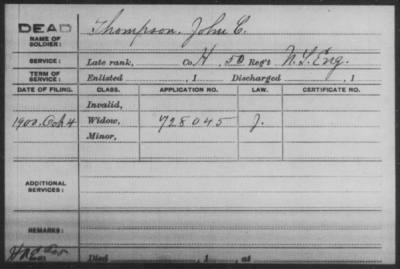 DEAD Thompson, John C.
NAME OF SOLDIER:
SERVICE: Late rank, Co. H, 50 Reg't N.Y. Eng.
TERM OF SERVICE: Enlisted , 1 Discharged , 1
DATE OF FILING. CLASS. APPLICATION NO. LAW. CERTIFICATE NO.
Invalid,
1900. Oct 4 Widow, 728045 J.
Minor,
ADDITIONAL SERVICES:
REMARKS:
Died , 1 , at